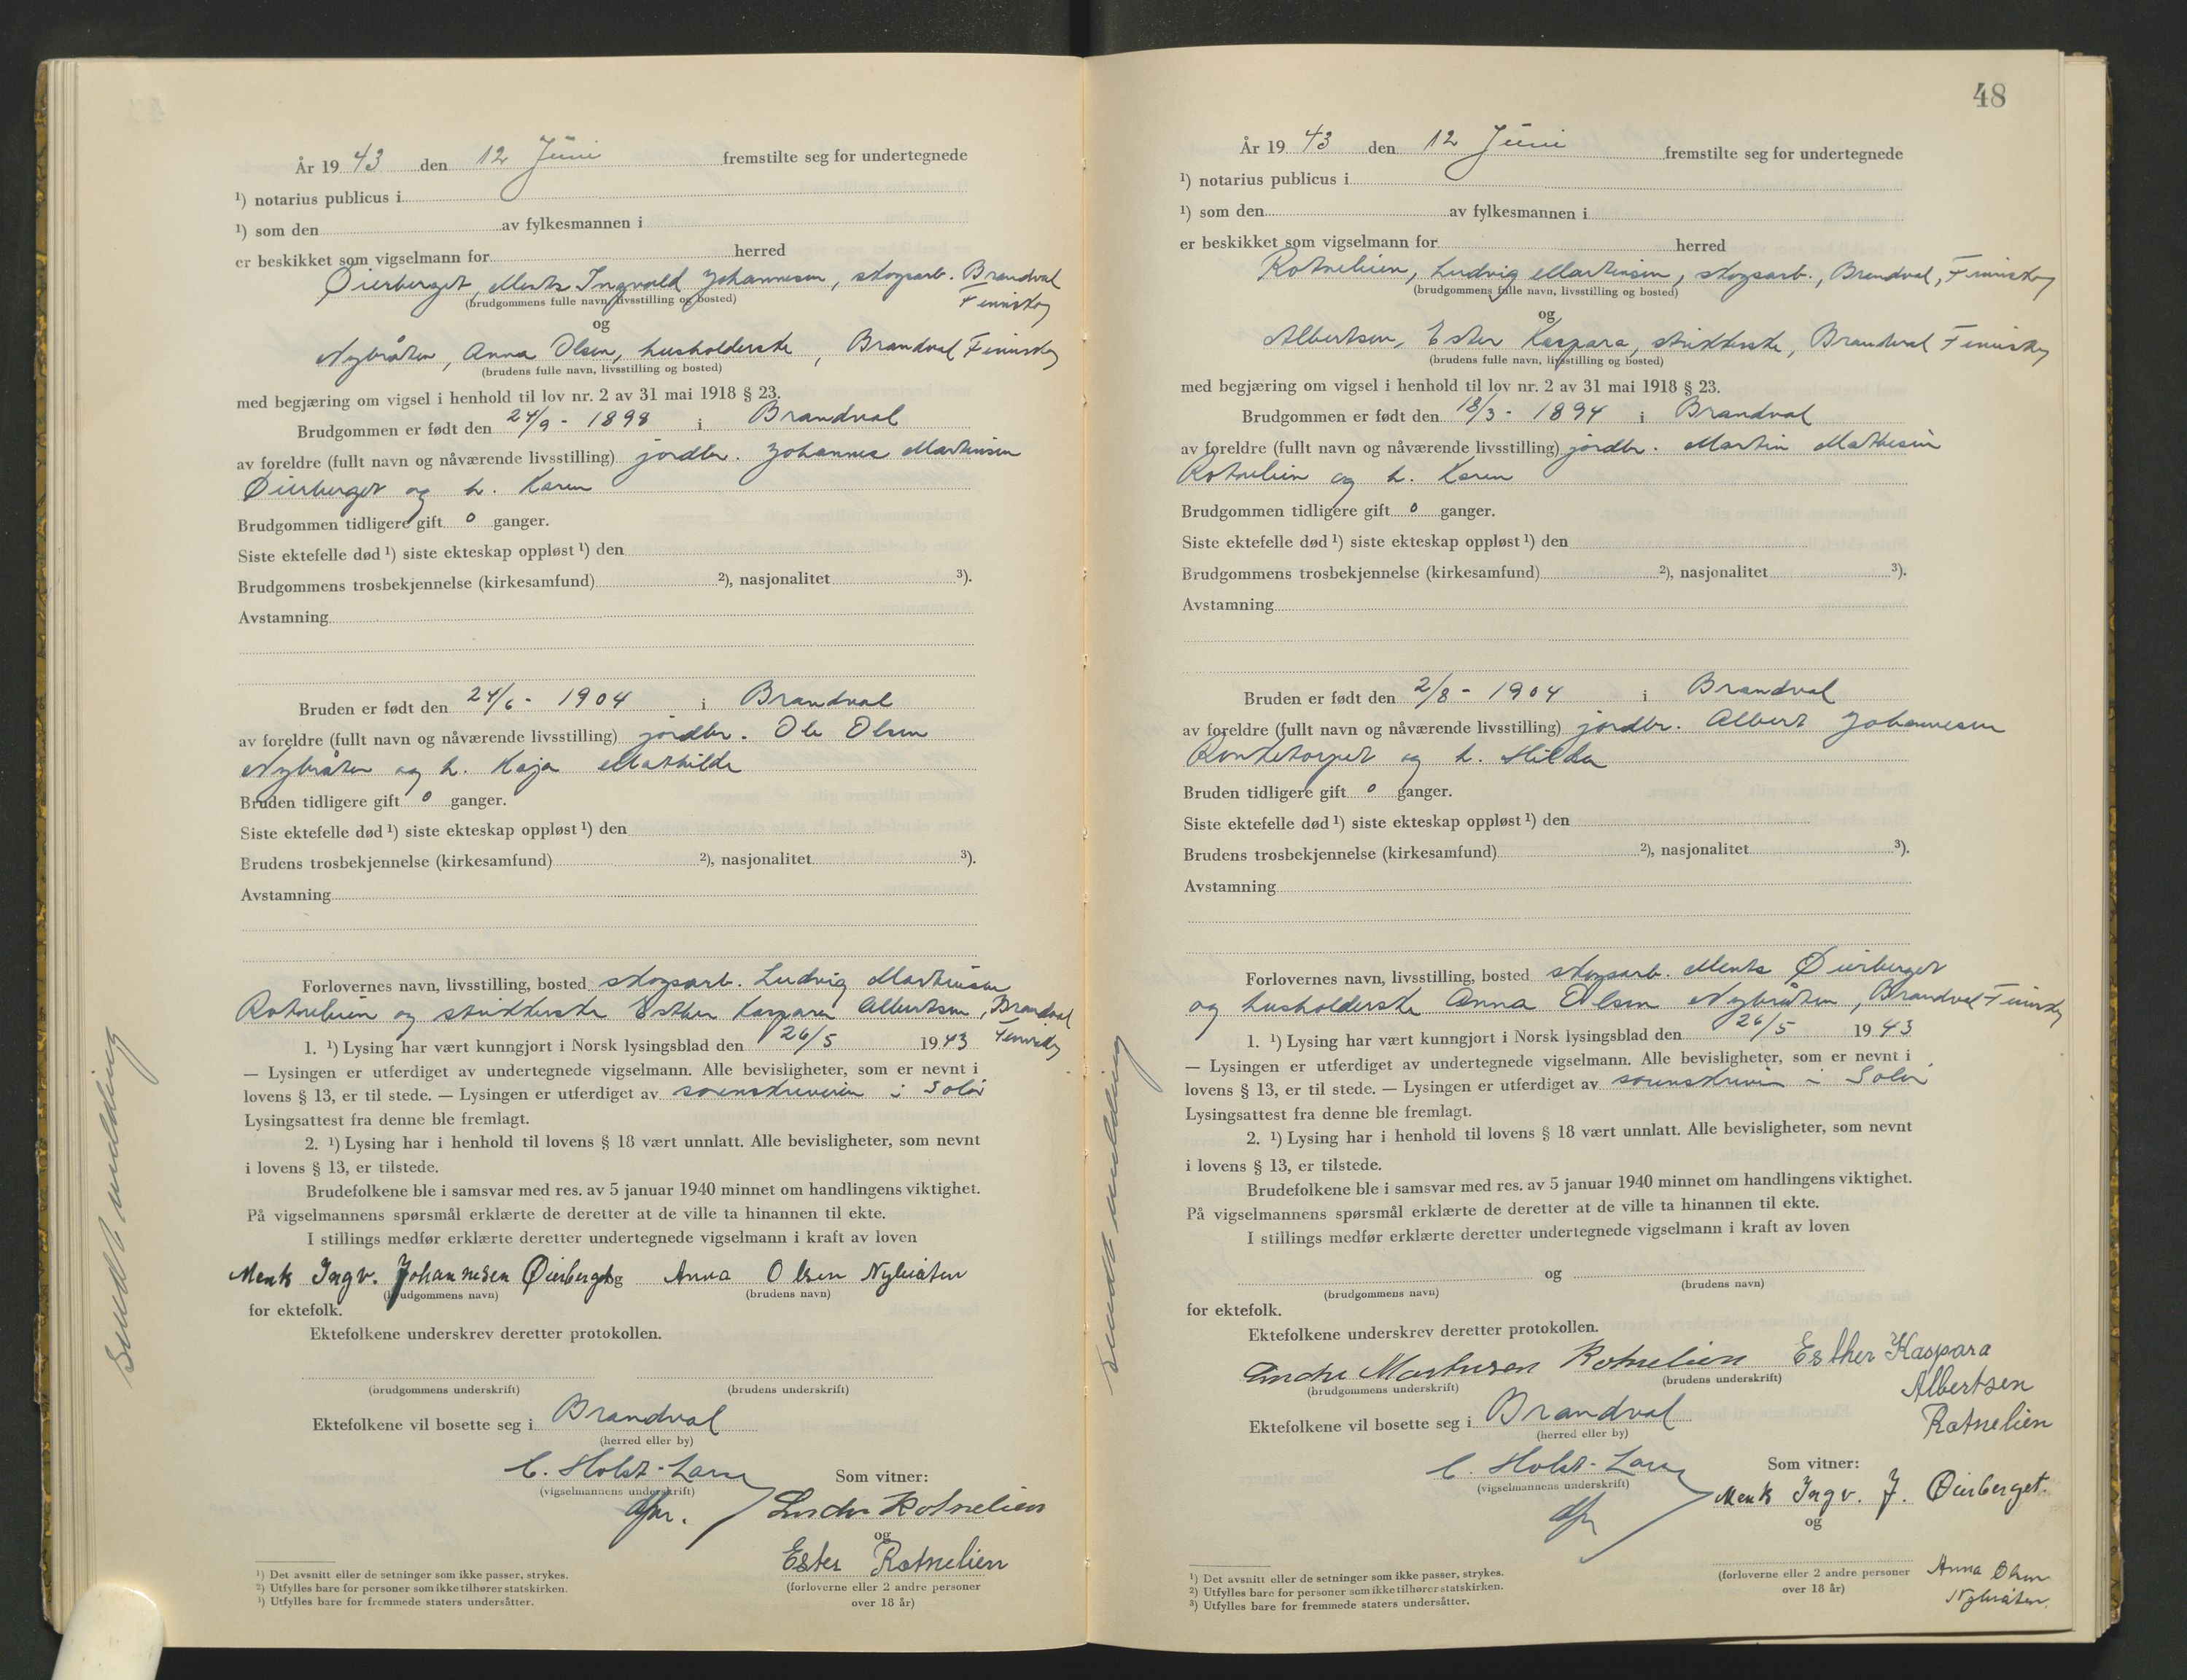 År 19 43 den 12 Juni fremstilte seg for undertegnede
¹) notarius publicus i
¹) som den av fylkesmannen i
er beskikket som vigselmann for herred
Øierberget, Ments Ingvald Johannesen, skogsarb. Brandval
Finnskog
(brudgommens fulle navn, livsstilling og bosted)
og
Nybråten, Anna Olsen, husholderske, Brandval Finnskog
(brudens fulle navn, livsstilling og bosted)
med begjæring om vigsel i henhold til lov nr. 2 av 31 mai 1918 § 23.
Brudgommen er født den 24/9 - 1898 i Brandval
av foreldre (fullt navn og nåværende livsstilling) jordbr. Johannes Martinsen
Øierberget og h. Karen
Brudgommen tidligere gift 0 ganger.
Siste ektefelle død ¹) siste ekteskap oppløst ¹) den
Brudgommens trosbekjennelse (kirkesamfund) ²), nasjonalitet ³).
Avstamning
Bruden er født den 24/6 - 1904 i Brandval
av foreldre (fullt navn og nåværende livsstilling) jordbr. Ole Olsen
Nybråten og h. Kaja Mathilde
Bruden tidligere gift 0 ganger.
Siste ektefelle død ¹) siste ekteskap oppløst ¹) den
Brudens trosbekjennelse (kirkesamfund) ²), nasjonalitet ³).
Avstamning
Forlovernes navn, livsstilling, bosted skogsarb. Ludvig Martinsen
Rotnelien og strikkerske Esther Kaspara Albertsen, Brandval
Finnskog
1. ¹) Lysing har vært kunngjort i Norsk lysingsblad den 26/5 1943
— Lysingen er utferdiget av undertegnede vigselmann. Alle bevisligheter, som er nevnt i
lovens § 13, er til stede. — Lysingen er utferdiget av sorenskriveren i Solør
Lysingsattest fra denne ble fremlagt.
2. ¹) Lysing har i henhold til lovens § 18 vært unnlatt. Alle bevisligheter, som nevnt
i lovens § 13, er tilstede.
Brudefolkene ble i samsvar med res. av 5 januar 1940 minnet om handlingens viktighet.
På vigselmannens spørsmål erklærte de deretter at de ville ta hinannen til ekte.
I stillings medfør erklærte deretter undertegnede vigselmann i kraft av loven
Ments Ingv. Johannesen Øierberget og Anna Olsen Nybråten
(brudgommens navn) (brudens navn)
for ektefolk.
Ektefolkene underskrev deretter protokollen.
(brudgommens underskrift) (brudens underskrift)
Ektefolkene vil bosette seg i Brandval
(herred eller by)
C. Holst-Larsen Som vitner:
(vigselmannens underskrift)
Ludv Rotnelien
og
Ester Rotnelien
(forloverne eller 2 andre personer
over 18 år)
¹) Det avsnitt eller de setninger som ikke passer, strykes.
²) Utfylles bare for personer som ikke tilhører statskirken.
³) Utfylles bare for fremmede staters undersåtter.
Sendt melding
48
År 19 43 den 12 Juni fremstilte seg for undertegnede
¹) notarius publicus i
¹) som den av fylkesmannen i
er beskikket som vigselmann for herred
Rotnelien, Ludvig Martinsen, skogsarb., Brandval, Finnskog
(brudgommens fulle navn, livsstilling og bosted)
og
Albertsen, Ester Kaspara, strikkerske, Brandval Finnskog
(brudens fulle navn, livsstilling og bosted)
med begjæring om vigsel i henhold til lov nr. 2 av 31 mai 1918 § 23.
Brudgommen er født den 18/3 - 1894 i Brandval
av foreldre (fullt navn og nåværende livsstilling) jordbr. Martin Mathisen
Rotnelien og h. Karen
Brudgommen tidligere gift 0 ganger.
Siste ektefelle død ¹) siste ekteskap oppløst ¹) den
Brudgommens trosbekjennelse (kirkesamfund) ²), nasjonalitet ³).
Avstamning
Bruden er født den 2/8 - 1904 i Brandval
av foreldre (fullt navn og nåværende livsstilling) jordbr. Albert Johannesen
og h. Hilda
Bruden tidligere gift 0 ganger.
Siste ektefelle død ¹) siste ekteskap oppløst ¹) den
Brudens trosbekjennelse (kirkesamfund) ²), nasjonalitet ³).
Avstamning
Forlovernes navn, livsstilling, bosted skogsarb. Ments Øierberget
og husholderske Anna Olsen Nybråten, Brandval Finnskog
1. ¹) Lysing har vært kunngjort i Norsk lysingsblad den 26/5 1943
— Lysingen er utferdiget av undertegnede vigselmann. Alle bevisligheter, som er nevnt i
lovens § 13, er til stede. — Lysingen er utferdiget av sorenskriveren i Solør
Lysingsattest fra denne ble fremlagt.
2. ¹) Lysing har i henhold til lovens § 18 vært unnlatt. Alle bevisligheter, som nevnt
i lovens § 13, er tilstede.
Brudefolkene ble i samsvar med res. av 5 januar 1940 minnet om handlingens viktighet.
På vigselmannens spørsmål erklærte de deretter at de ville ta hinannen til ekte.
I stillings medfør erklærte deretter undertegnede vigselmann i kraft av loven
og
(brudgommens navn) (brudens navn)
for ektefolk.
Ektefolkene underskrev deretter protokollen.
Martinsen Rotnelien Esther Kaspara
Albertsen
Rotnelien
(brudgommens underskrift) (brudens underskrift)
Ektefolkene vil bosette seg i Brandval
(herred eller by)
C. Holst-Larsen Som vitner:
(vigselmannens underskrift)
Ments Ingv. J. Øierberget.
og
Anna Olsen
Nybråten.
(forloverne eller 2 andre personer
over 18 år)
¹) Det avsnitt eller de setninger som ikke passer, strykes.
²) Utfylles bare for personer som ikke tilhører statskirken.
³) Utfylles bare for fremmede staters undersåtter.
Sendt melding